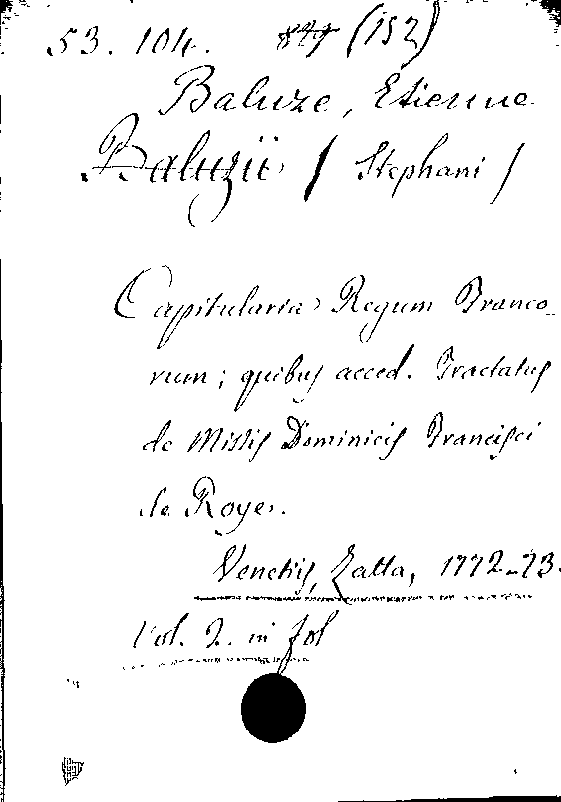 53. 104. 879 (152)
Baluze, Etienne
Baluzii / Stephani /
Capitularia Regum Franco-
rum; quibus acced. Tractatus
de Missis Dominicis Francisci
de Roye.
Venetiis, Zatta, 1772-73.
Vol. 2. in fol